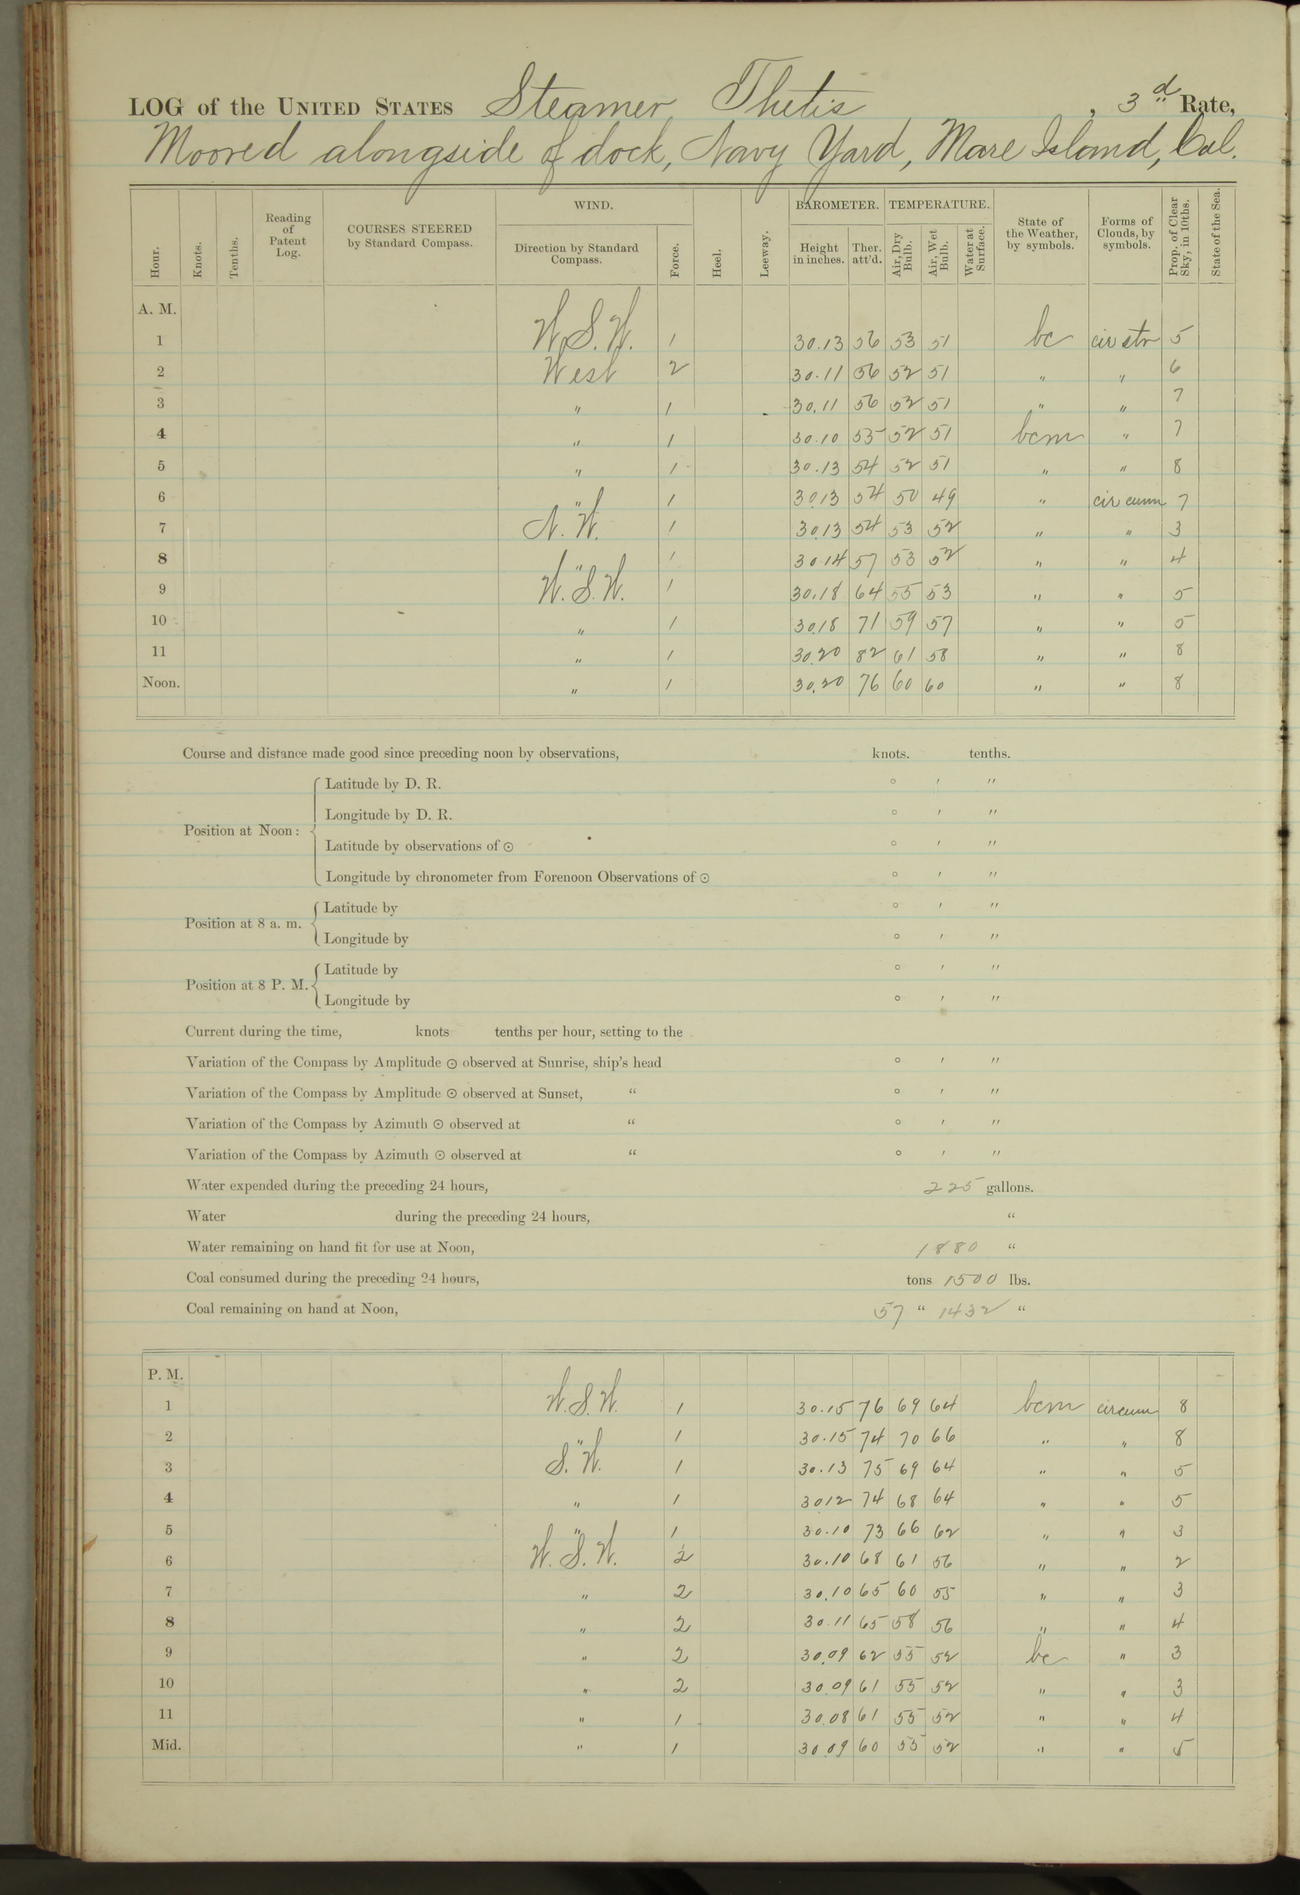 LOG of the UNITED STATES Steamer Thetis, 3d Rate,
Moored alongside of dock, Navy Yard, Mare Island, Cal.
Hour. Knots. Tenths. Reading of Patent Log. COURSES STEERED by Standard Compass. WIND. Direction by Standard Compass. Force. Heel. Leeway. BAROMETER. Height in inches. Ther. att'd. TEMPERATURE. Air, Dry Bulb. Air, Wet Bulb. Water at Surface. State of the Weather, by symbols. Forms of Clouds, by symbols. Prop. of Clear Sky, in 10ths. State of the Sea.
A. M.
1 W.S.W. 1 30.13 56 53 51 bc cir str 5
2 West 2 30.11 56 52 51 " " 6
3 " 1 30.11 56 52 51 " " 7
4 " 1 30.10 55 52 51 bcm " 7
5 " 1 30.13 54 52 51 " " 8
6 " 1 30.13 54 50 49 " cir cum 7
7 N.W. 1 30.13 54 53 52 " " 3
8 " 1 30.14 57 53 52 " " 4
9 W.S.W. 1 30.18 64 55 53 " " 5
10 " 1 30.18 71 59 57 " " 5
11 " 1 30.20 82 61 58 " " 8
Noon. " 1 30.20 76 60 60 " " 8
Course and distance made good since preceding noon by observations, knots. tenths.
Position at Noon: Latitude by D. R. ° ′ ″
Longitude by D. R. ° ′ ″
Latitude by observations of ☉ ° ′ ″
Longitude by chronometer from Forenoon Observations of ☉ ° ′ ″
Position at 8 a. m. Latitude by ° ′ ″
Longitude by ° ′ ″
Position at 8 P. M. Latitude by ° ′ ″
Longitude by ° ′ ″
Current during the time, knots tenths per hour, setting to the
Variation of the Compass by Amplitude ☉ observed at Sunrise, ship's head ° ′ ″
Variation of the Compass by Amplitude ☉ observed at Sunset, “ ° ′ ″
Variation of the Compass by Azimuth ☉ observed at “ ° ′ ″
Variation of the Compass by Azimuth ☉ observed at “ ° ′ ″
Water expended during the preceding 24 hours, 225 gallons.
Water during the preceding 24 hours, “
Water remaining on hand fit for use at Noon, 1880 “
Coal consumed during the preceding 24 hours, tons 1500 lbs.
Coal remaining on hand at Noon, 57 “ 1432 “
P. M.
1 W.S.W. 1 30.15 76 69 64 bcm cir cum 8
2 " 1 30.15 74 70 66 " " 8
3 S.W. 1 30.13 75 69 64 " " 5
4 " 1 30.12 74 68 64 " " 5
5 " 1 30.10 73 66 62 " " 3
6 W.S.W. 2 30.10 68 61 56 " " 2
7 " 2 30.10 65 60 55 " " 3
8 " 2 30.11 65 58 56 " " 4
9 " 2 30.09 62 55 52 bc " 3
10 " 2 30.09 61 55 52 " " 3
11 " 1 30.08 61 55 52 " " 4
Mid. " 1 30.09 60 55 52 " " 5